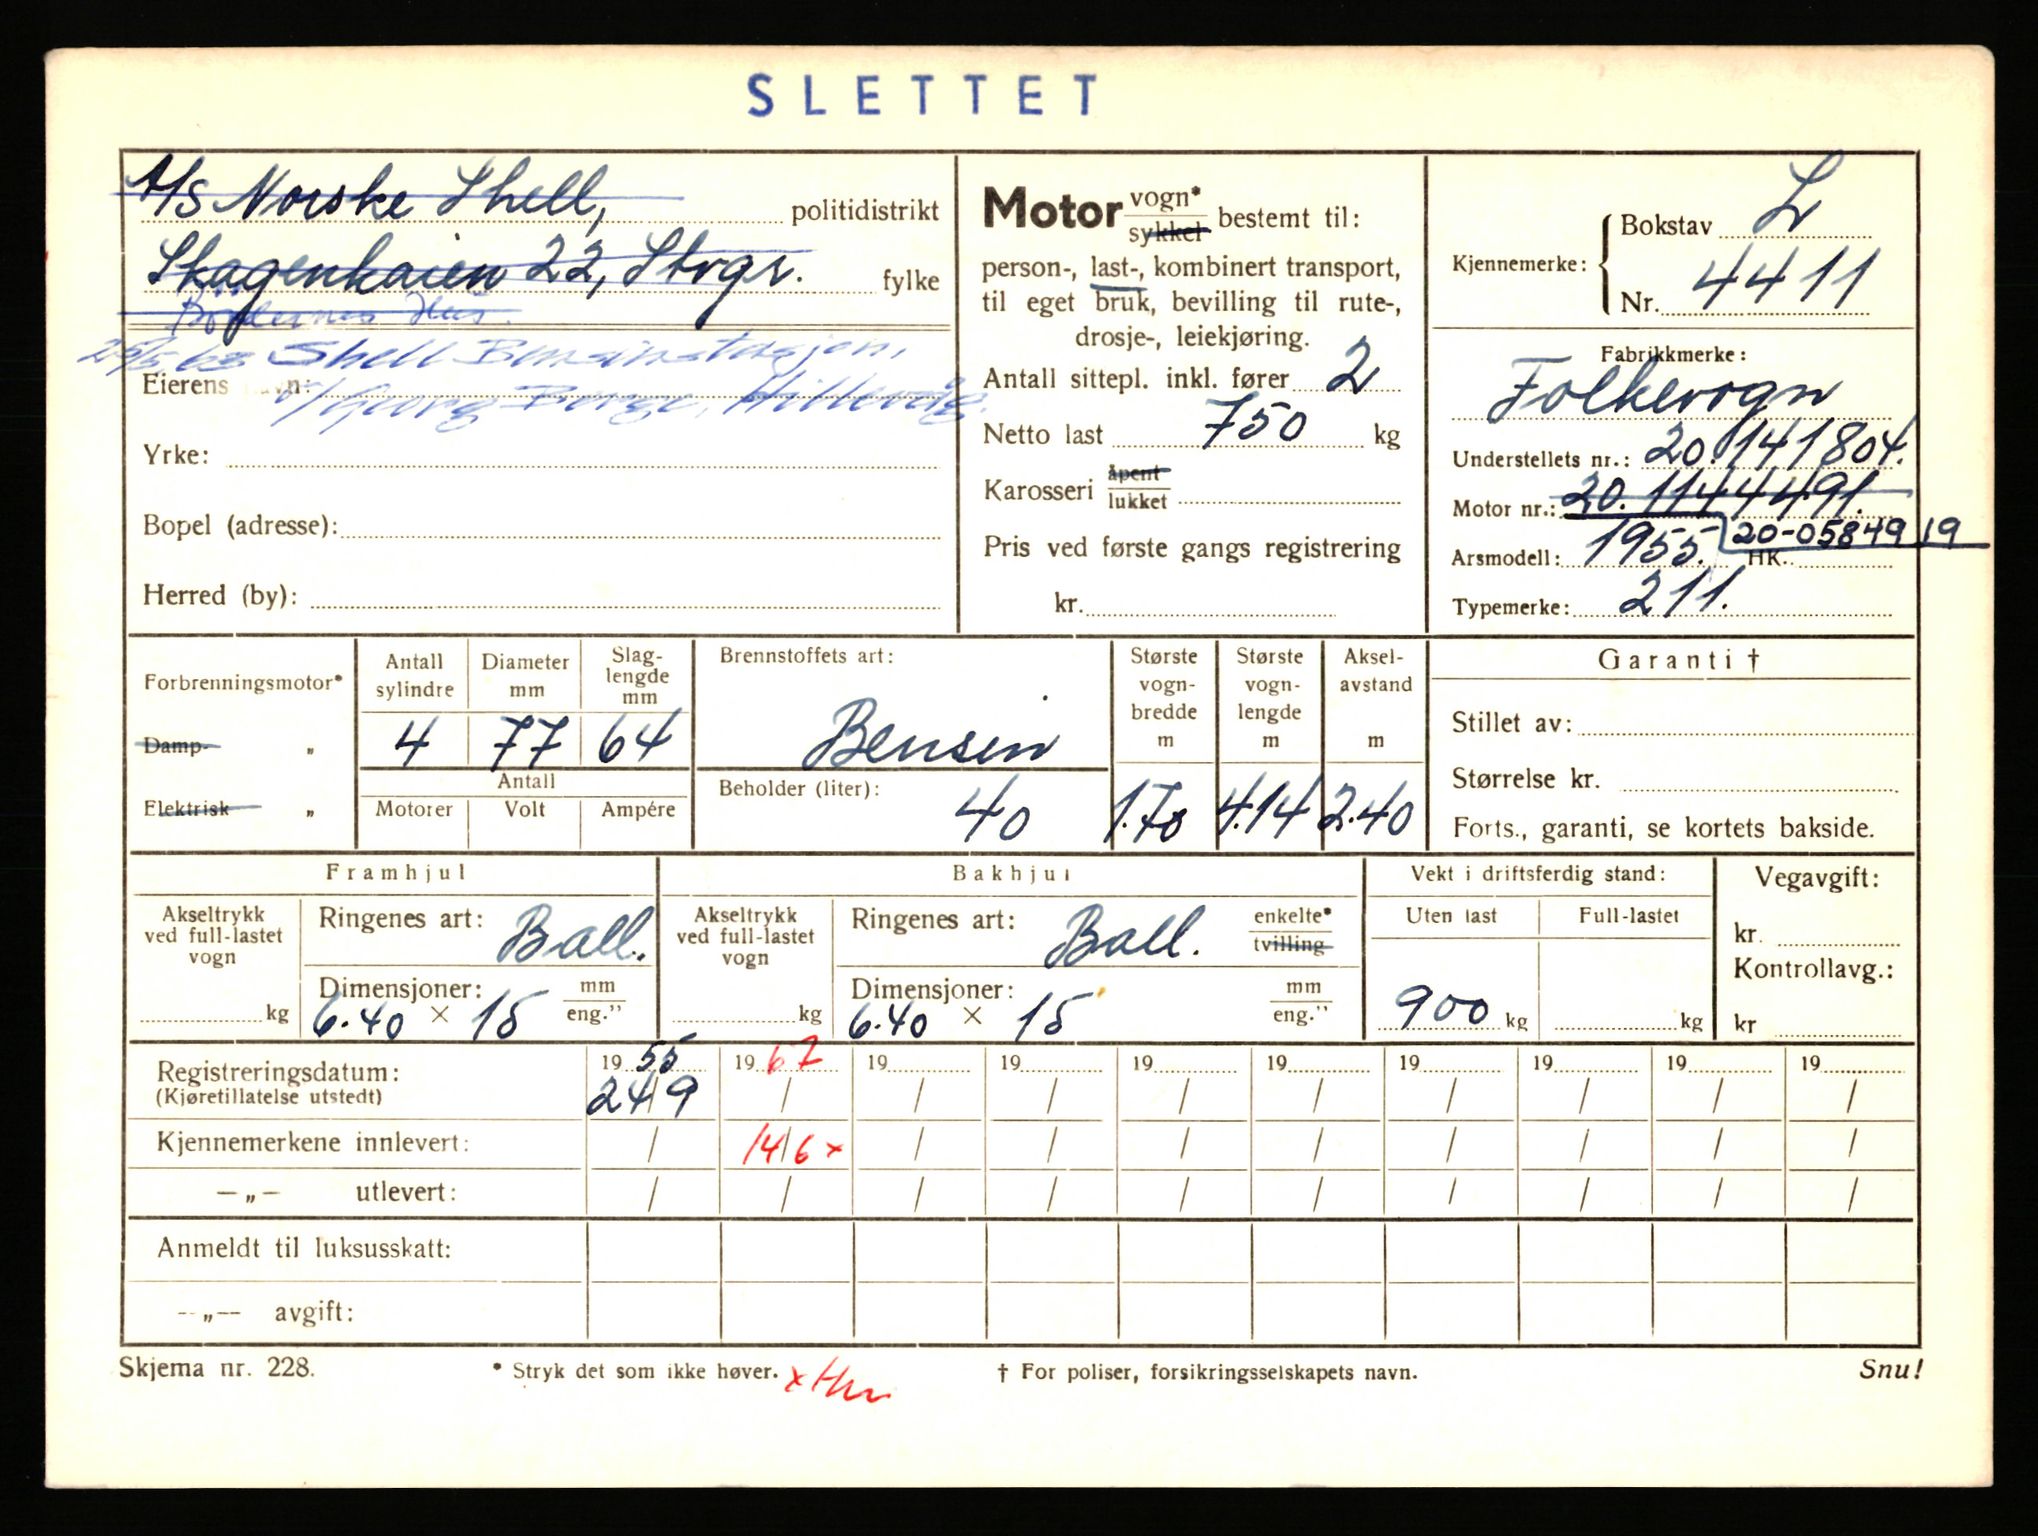 SLETTET
A/S Norske Shell, politidistrikt
Skagenkaien 22, Stvgr. fylke
Hus.
25/5.63 Shell Bensinstasjon,
Eierens navn: v/Georg Berge, Hillevåg.
Yrke:
Bopel (adresse):
Herred (by):
Motor vogn* sykkel bestemt til:
person-, last-, kombinert transport,
til eget bruk, bevilling til rute-,
drosje-, leiekjøring.
Antall sittepl. inkl. fører 2
Netto last 750 kg
Karosseri åpent lukket
Pris ved første gangs registrering
kr.
Kjennemerke: Bokstav L
Nr. 4411
Fabrikkmerke:
Folkevogn
Understellets nr.: 20.141804.
Motor nr.: 20.1144491.
20-0584919
Arsmodell: 1955. HK.
Typemerke: 211.
Forbrenningsmotor*
Damp- „
Elektrisk „
Antall sylindre
Diameter mm
Slag-lengde mm
4 77 64
Antall
Motorer Volt Ampére
Brennstoffets art:
Bensin
Beholder (liter):
40
Største vogn-bredde m
1.70
Største vogn-lengde m
4.14
Aksel-avstand m
2.40
Garanti †
Stillet av:
Størrelse kr.
Forts., garanti, se kortets bakside.
Framhjul
Akseltrykk ved full-lastet vogn
kg
Ringenes art: Ball.
Dimensjoner: mm
6.40 × 15 eng.”
Bakhjul
Akseltrykk ved full-lastet vogn
kg
Ringenes art: Ball. enkelte* tvilling
Dimensjoner: mm
6.40 × 15 eng.”
Vekt i driftsferdig stand:
Uten last Full-lastet
900 kg kg
Vegavgift:
kr.
Kontrollavg.:
kr
Registreringsdatum: 19 55 19 67 19 19 19 19 19 19 19 19
(Kjøretillatelse utstedt) 24/9 / / / / / / / / /
Kjennemerkene innlevert: / 14/6 x / / / / / / / /
—„— utlevert: / / / / / / / / / /
Anmeldt til luksusskatt:
—„— avgift:
Skjema nr. 228. * Stryk det som ikke høver. x † For poliser, forsikringsselskapets navn. Snu!